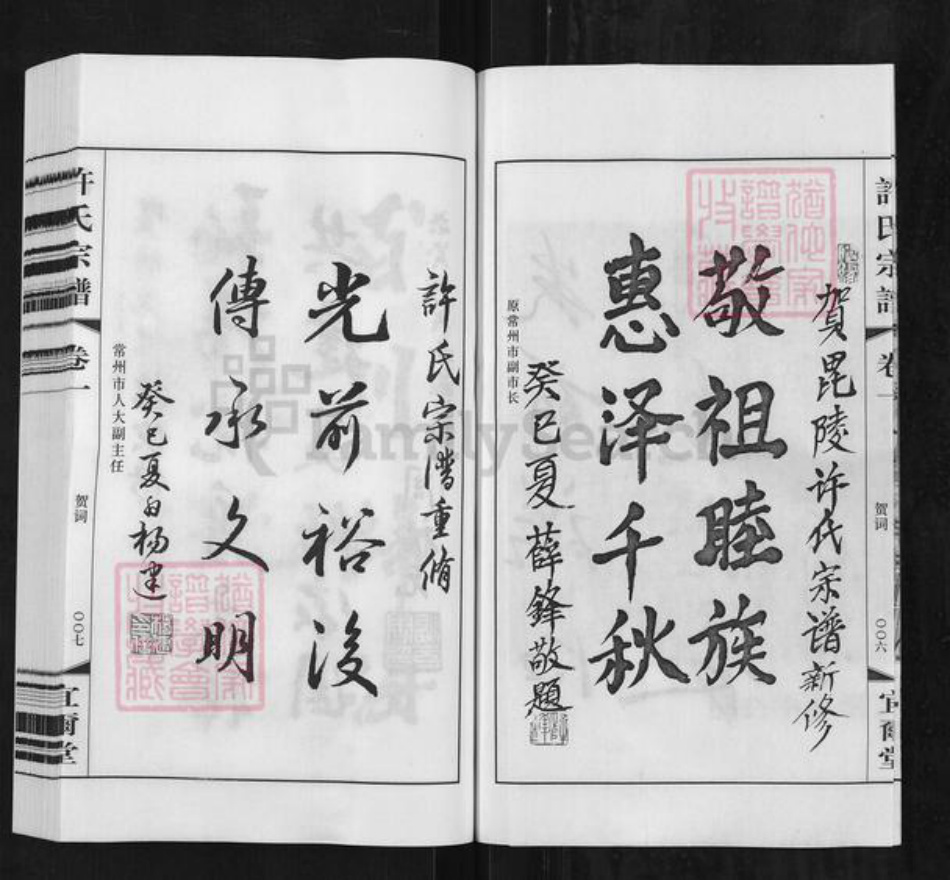 許氏宗譜
卷一
贺词
〇〇六
宜爾堂
賀毘陵许氏宗谱新修
敬祖睦族
惠泽千秋
癸巳夏薛鋒敬題
原常州市副市长
許氏宗譜重脩
光前裕後
傳承文明
癸巳夏
常州市人大副主任
許氏宗譜
卷一
贺词
〇〇七
宜爾堂
FamilySearch